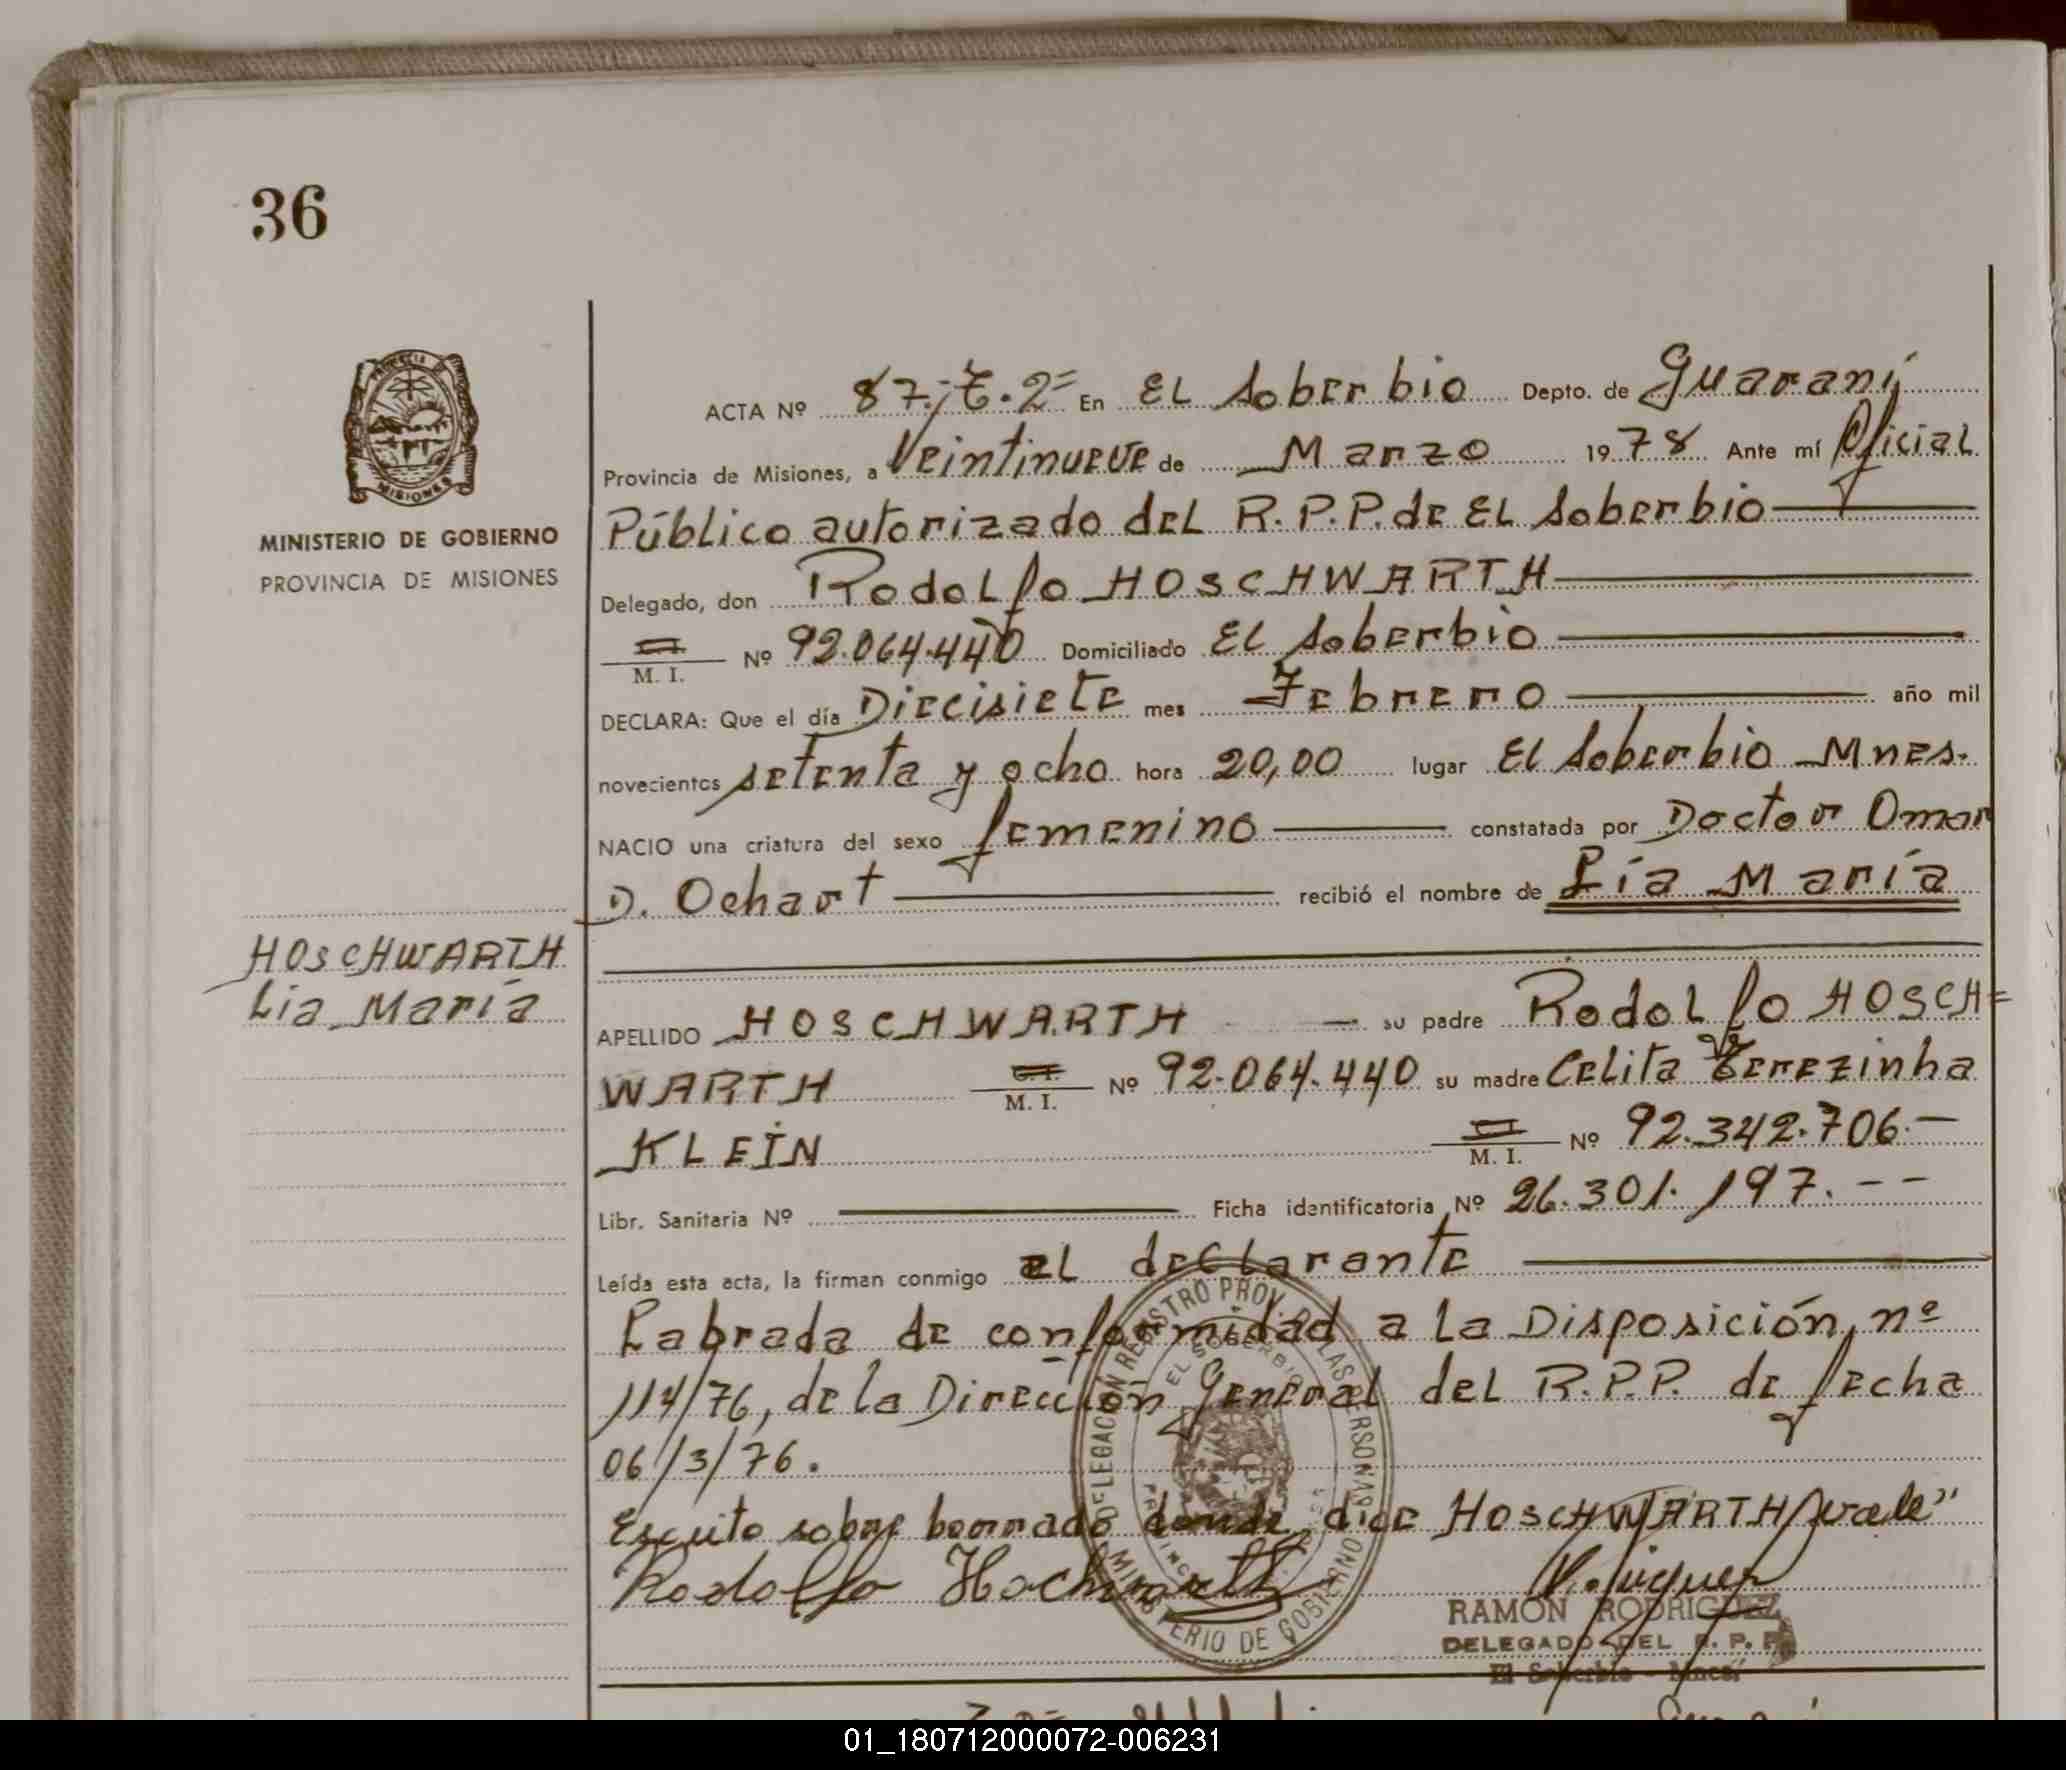 36
MISIONES
MINISTERIO DE GOBIERNO
PROVINCIA DE MISIONES
HOSCHWARTH
Lia María
ACTA Nº 87.-T.2= En EL Soberbio Depto. de Guaraní
Provincia de Misiones, a Veintinueve de Marzo 1978 Ante mí Oficial
Público autorizado del R.P.P. de El Soberbio
Delegado, don Rodolfo HOSCHWARTH
M. I. Nº 92.064.440 Domiciliado El Soberbio
DECLARA: Que el día Diecisiete mes Febrero año mil
novecientos setenta y ocho hora 20,00 lugar El Soberbio Mnes.
NACIO una criatura del sexo femenino constatada por Doctor Omar
D. Ochart recibió el nombre de Lía María
APELLIDO HOSCHWARTH su padre Rodolfo HOSCH=
WARTH M. I. Nº 92.064.440 su madre Celita Terezinha
KLEIN M. I. Nº 92.342.706.-
Libr. Sanitaria Nº Ficha identificatoria Nº 26.301.197.--
Leída esta acta, la firman conmigo el declarante
Labrada de conformidad a la Disposición nº
114/76, de la Dirección General del R.P.P. de fecha
06/3/76.
Escrito sobre borrado donde dice HOSCHWARTH "vale"
Rodolfo Hochwarth
DELEGACIÓN REGISTRO PROV. DE LAS PERSONAS
EL SOBERBIO
MINISTERIO DE GOBIERNO
RAMÓN RODRIGUEZ
DELEGADO DEL R. P. P.
El Soberbio - Mnes.
01_180712000072-006231